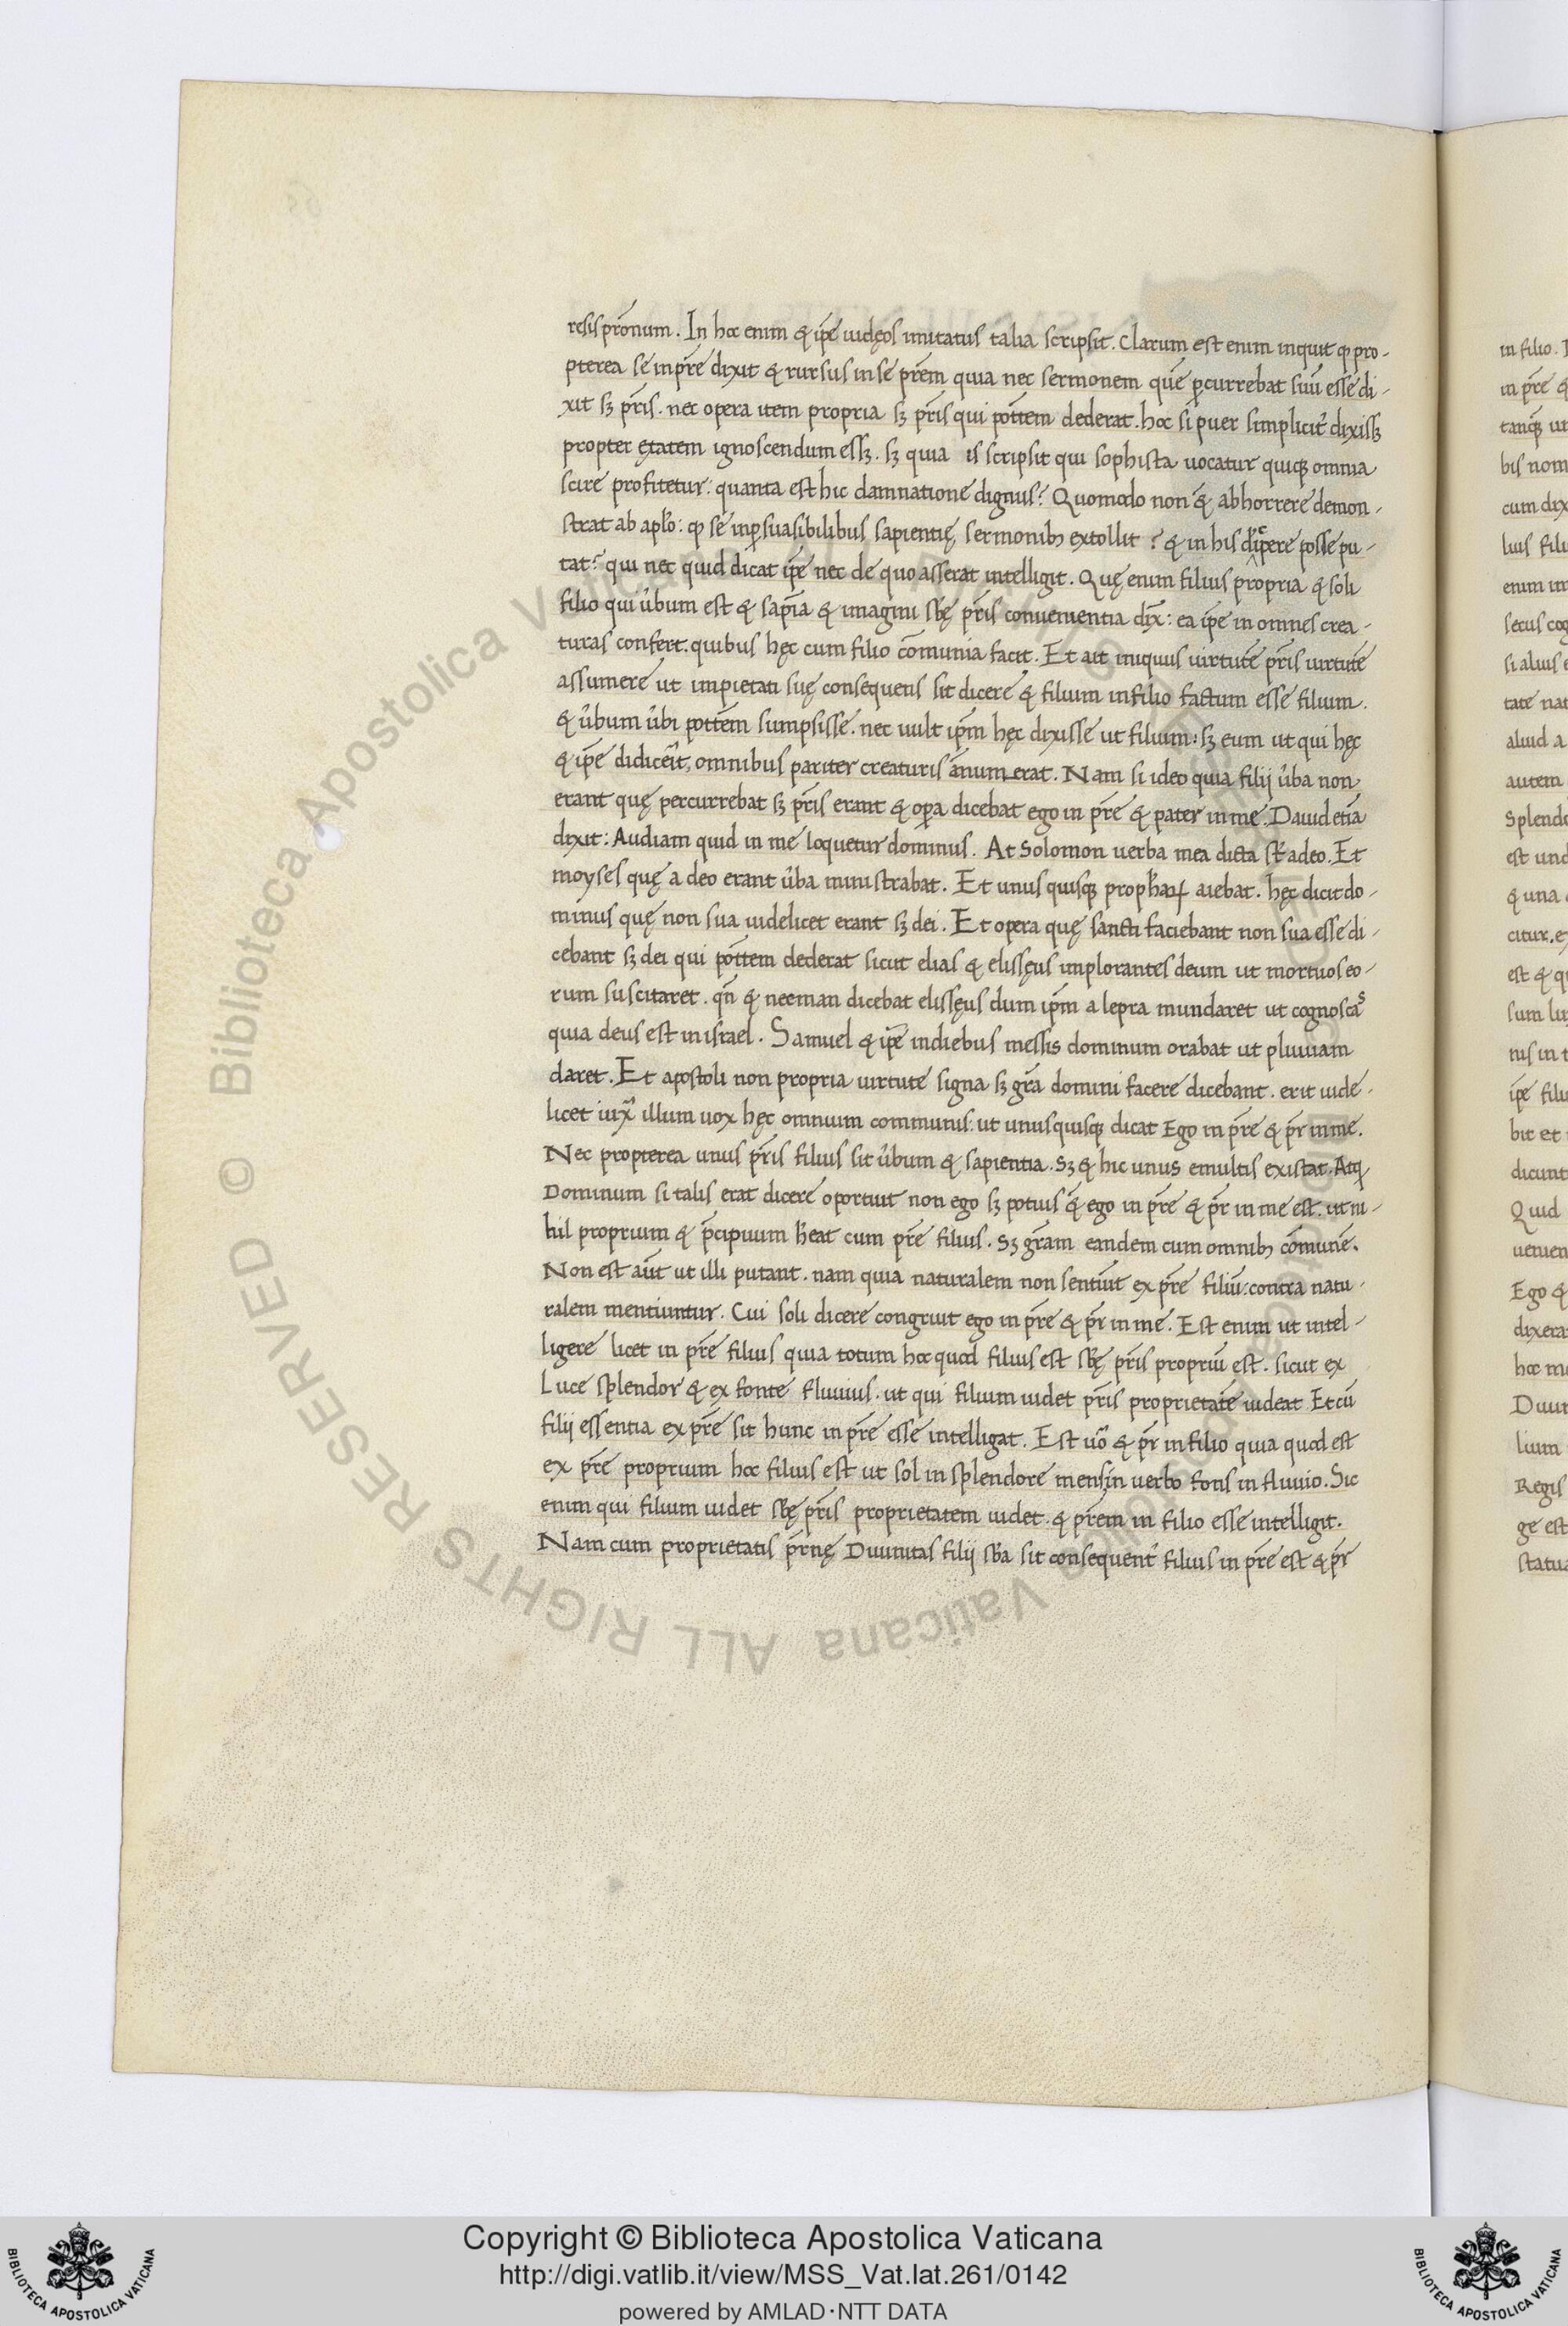 resis pr̄onum. In hoc enim & ip̄e iudęos imitatus talia scripsit. Clarum est enim inquit ꝙ pro-
pterea se in pr̄e dixit & rursus in se pr̄em quia nec sermonem quē ꝑcurrebat suū esse di-
xit sꝫ pr̄is. nec opera item propria sꝫ pr̄is qui pot̄tem dederat. hoc si puer simplicit᷑ dixissꝫ
propter ętatem ignoscendum essꝫ. sꝫ quia is scripsit qui sophista uocatur quiqꝫ omnia
scire profitetur: quanta est hic damnatione dignus? Quomodo non & abhorrere demon-
strat ab apl̄o: ꝙ se in ꝑsuasibilibus sapientię sermonibꝫ extollit? & in his decipere posse pu-
tat? qui nec quid dicat ip̄e nec de quo asserat intelligit. Quę enim filius propria & soli
filio qui u̓bum est & sap̄ia & imagini sb̄ę pr̄is conuenientia dix̄: ea ip̄e in omnes crea-
turas confert: quibus hęc cum filio cōmunia facit. Et ait iniquus uirtutē pr̄is uirtutē
assumere ut impietati suę consequens sit dicere & filium in filio factum esse filium.
& u̓bum u̓bi pot̄tem sumpsisse. nec uult ip̄m hęc dixisse ut filium: sꝫ eum ut qui hęc
& ip̄e didicerit, omnibus pariter creaturis ānumerat. Nam si ideo quia filij u̓ba non
erant quę percurrebat sꝫ pr̄is erant & oꝑa dicebat ego in pr̄e & pater in me. Dauid etiā
dixit: Audiam quid in me loquetur dominus. At Solomon uerba mea dicta st̄ a deo. Et
moyses quę a deo erant u̓ba ministrabat. Et unus quisqꝫ prophetaꝝ aiebat. hęc dicit do-
minus quę non sua uidelicet erant sꝫ dei. Et opera quę sancti faciebant non sua esse di-
cebant sꝫ dei qui pot̄tem dederat sicut elias & elissęus implorantes deum ut mortuos eo-
rum suscitaret. qn̄ & neeman dicebat elissęus dum ip̄m a lepra mundaret ut cognoscas
quia deus est in israel. Samuel & ip̄e in diebus messis dominum orabat ut pluuiam
daret. Et apostoli non propria uirtute signa sꝫ gr̄a domini facere dicebant. erit uide-
licet iux̄ illum uox hęc omnium communis: ut unusquisqꝫ dicat Ego in pr̄e & pr̄ in me.
Nec propterea unus pr̄is filius sit u̓bum & sapientia. Sꝫ & hic unus e multis existat. Atqꝫ
Dominum si talis erat dicere oportuit non ego sꝫ potius & ego in pr̄e & pr̄ in me est. ut ni-
hil proprium & p̄cipuum h̄eat cum pr̄e filius. Sꝫ gr̄am eandem cum omnibꝫ cōmunē.
Non est aūt ut illi putant. nam quia naturalem non sentiūt ex pr̄e filiū: contra natu-
ralem mentiuntur. Cui soli dicere congruit ego in pr̄e & pr̄ in me. Est enim ut intel-
ligere licet in pr̄e filius quia totum hoc quod filius est sb̄ę pr̄is propriū est. sicut ex
Luce splendor & ex fonte fluuius. ut qui filium uidet pr̄is proprietatē uideat Et cū
filij essentia ex pr̄e sit hunc in pr̄e esse intelligat. Est uō & pr̄ in filio quia quod est
ex pr̄e proprium hoc filius est ut sol in splendore mens in uerbo fons in fluuio. Sic
enim qui filium uidet sb̄ę pr̄is proprietatem uidet. & pr̄em in filio esse intelligit.
Nam cum proprietatis pr̄nę Diuinitas filij sb̄a sit consequent᷑ filius in pr̄e est & pr̄
© Biblioteca Apostolica Vaticana ALL RIGHTS RESERVED
Copyright © Biblioteca Apostolica Vaticana
http://digi.vatlib.it/view/MSS_Vat.lat.261/0142
powered by AMLAD·NTT DATA
BIBLIOTECA APOSTOLICA VATICANA
BIBLIOTECA APOSTOLICA VATICANA